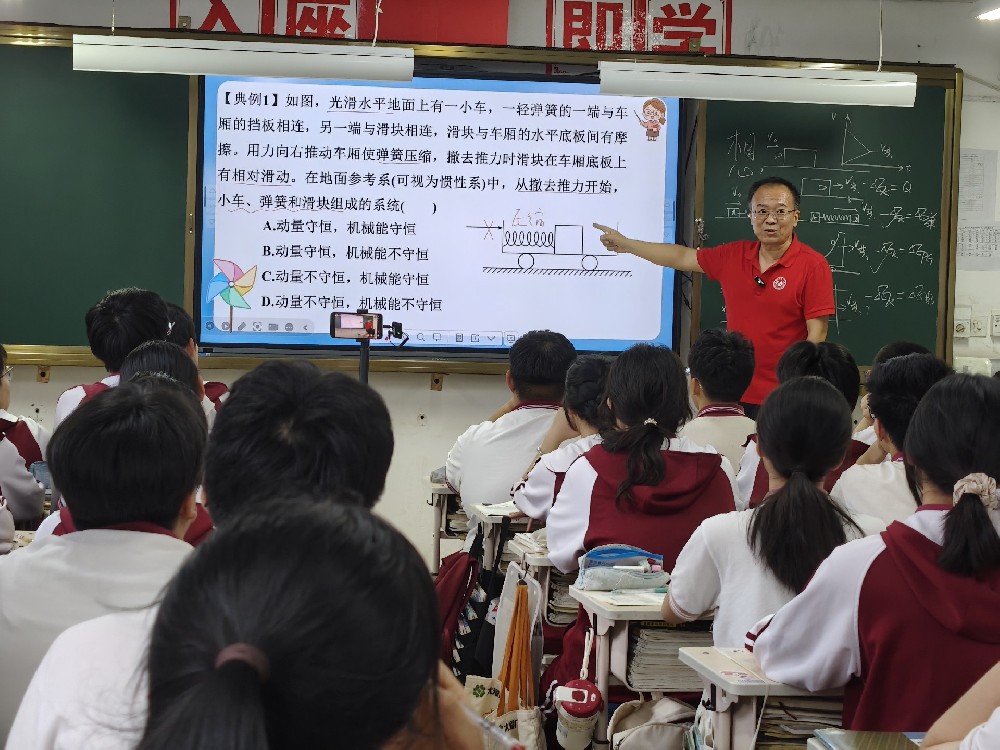 入座 即学
【典例1】如图，光滑水平地面上有一小车，一轻弹簧的一端与车
厢的挡板相连，另一端与滑块相连，滑块与车厢的水平底板间有摩
擦。用力向右推动车厢使弹簧压缩，撤去推力时滑块在车厢底板上
有相对滑动。在地面参考系(可视为惯性系)中，从撤去推力开始，
小车、弹簧和滑块组成的系统(　　)
A.动量守恒，机械能守恒
B.动量守恒，机械能不守恒
C.动量不守恒，机械能守恒
D.动量不守恒，机械能不守恒
压缩